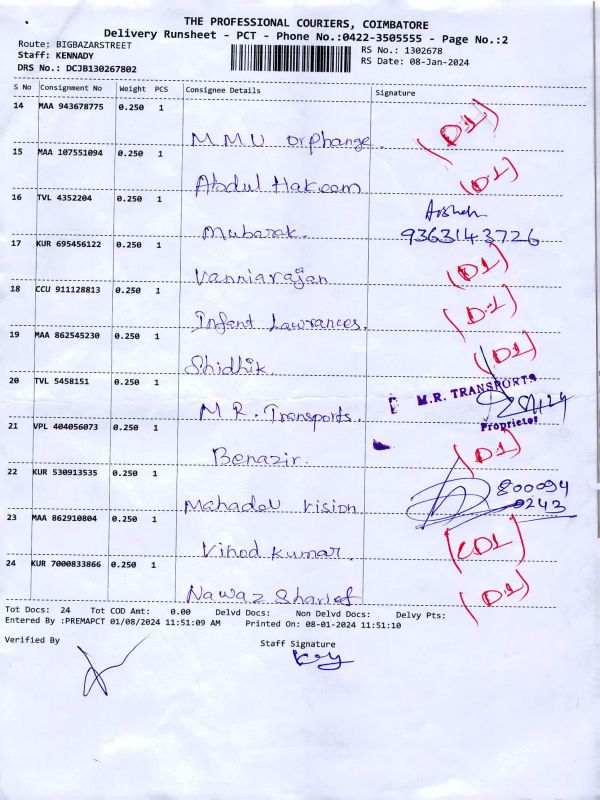 THE PROFESSIONAL COURIERS, COIMBATORE
Delivery Runsheet - PCT - Phone No.:0422-3505555 - Page No.:2
Route: BIGBAZARSTREET RS No.: 1302678
Staff: KENNADY RS Date: 08-Jan-2024
DRS No.: DCJB130267802
S No Consignment No Weight PCS Consignee Details Signature
14 MAA 943678775 0.250 1
M.M.U Orphange. (D1)
15 MAA 107551094 0.250 1
Abdul Hakeem (D1)
16 TVL 4352204 0.250 1
Mubarak. 9363143726
17 KUR 695456122 0.250 1
Vanniarajan (D1)
18 CCU 911128813 0.250 1
Infant Lawrances. (D1)
19 MAA 862545230 0.250 1
Shidhik. (D1)
20 TVL 5458151 0.250 1 M.R. TRANSPORTS
M R. Transports. Proprietor
21 VPL 404056073 0.250 1
Benazir. (D1)
22 KUR 530913535 0.250 1 800094
Mahadev Vision 0243
23 MAA 862910804 0.250 1
Vinod Kumar. (CD1)
24 KUR 7000833866 0.250 1
Nawaz Sharief (D1)
Tot Docs: 24 Tot COD Amt: 0.00 Delvd Docs: Non Delvd Docs: Delvy Pts:
Entered By :PREMAPCT 01/08/2024 11:51:09 AM Printed On: 08-01-2024 11:51:10
Verified By Staff Signature